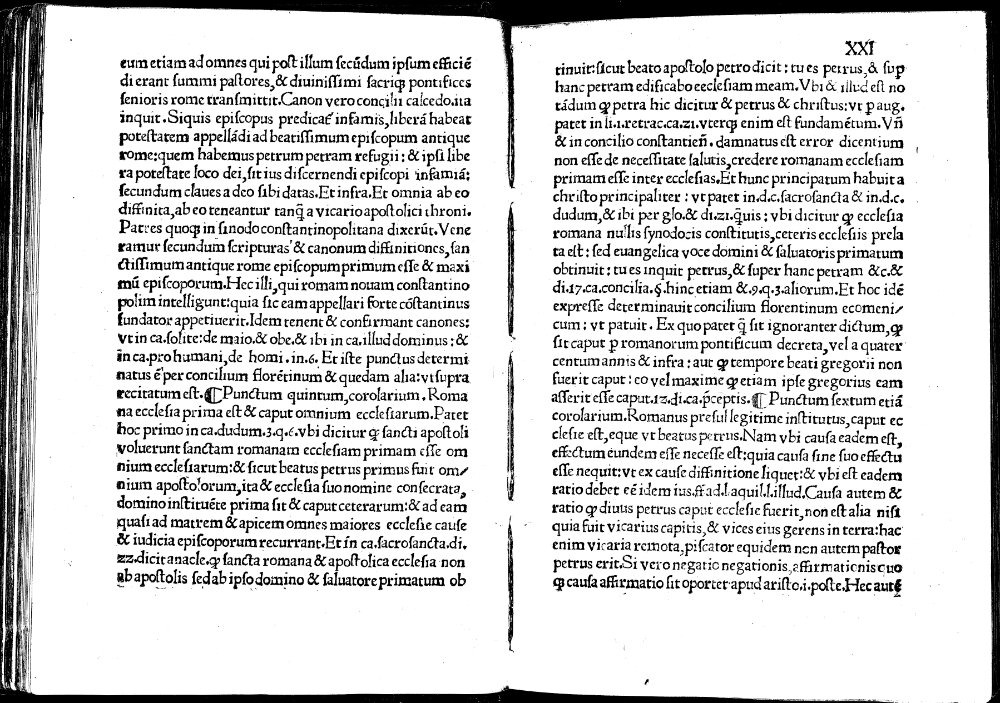 eum etiam ad omnes qui post illum secũdum ipsum efficiẽ
di erant summi pastores, & diuinissimi sacriq̃ pontifices
senioris rome transmittit. Canon vero concilii calcedo. ita
inquit. Siquis episcopus predicaẽ infamis, liberã habeat
potestatem appellãdi ad beatissimum episcopum antique
rome: quem habemus petrum petram refugii: & ipsi libe
ra potestate loco dei, sit ius discernendi episcopi infamiã:
secundum claues a deo sibi datas. Et infra. Et omnia ab eo
diffinita, ab eo teneantur tanq̃ a vicario apostolici throni.
Patres quoq̃ in sinodo constantinopolitana dixerũt. Vene
ramur secundum scripturas & canonum diffinitiones, san
ctissimum antique rome episcopum primum esse & maxi
mũ episcoporum. Hec illi, qui romam nouam constantino
polim intelligunt: quia sic eam appellari forte cõstantinus
fundator appetiuerit. Idem tenent & confirmant canones:
vt in ca. solite: de maio. & obe. & ibi in ca. illud dominus: &
in ca. pro humani, de homi. in. 6. Et iste punctus determi
natus ẽ per concilium florẽtinum & quedam alia: vt supra
recitatum est. ¶ Punctum quintum, corolarium. Roma
na ecclesia prima est & caput omnium ecclesiarum. Patet
hoc primo in ca. dudum. 3. q. 6. vbi dicitur ꝙ sancti apostoli
voluerunt sanctam romanam ecclesiam primam esse om
nium ecclesiarum: & sicut beatus petrus primus fuit om/
nium apostolorum, ita & ecclesia suo nomine consecrata,
domino instituẽte prima sit & caput ceterarum: & ad eam
quasi ad matrem & apicem omnes maiores ecclesie cause
& iudicia episcoporum recurrant. Et in ca. sacrosancta. di.
22. dicit anacle. ꝙ sancta romana & apostolica ecclesia non
ab apostolis sed ab ipso domino & saluatore primatum ob
XXI
tinuit: sicut beato apostolo petro dicit: tu es petrus, & sup
hanc petram edificabo ecclesiam meam. Vbi & illud est no
tãdum ꝙ petra hic dicitur & petrus & christus: vt p aug.
patet in li. 1. retrac. ca. 21. vterq̃ enim est fundamẽtum. Vñ
& in concilio constantieñ. damnatus est error dicentium
non esse de necessitate salutis, credere romanam ecclesiam
primam esse inter ecclesias. Et hunc principatum habuit a
christo principaliter: vt patet in. d. c. sacrosancta & in. d. c.
dudum, & ibi per glo. & di. 21. q̃uis: vbi dicitur ꝙ ecclesia
romana nullis synodois constitutis, ceteris ecclesiis prela
ta est: sed euangelica voce domini & saluatoris primatum
obtinuit: tu es inquit petrus, & super hanc petram &c. &
di. 17. ca. concilia. §. hinc etiam & .9. q. 3. aliorum. Et hoc idẽ
expresse determinauit concilium florentinum ecomeni/
cum: vt patuit. Ex quo patet q̃ sit ignoranter dictum, ꝙ
sit caput p romanorum pontificum decreta, vel a quater
centum annis & infra: aut ꝙ tempore beati gregorii non
fuerit caput: eo vel maxime ꝙ etiam ipse gregorius eam
asserit esse caput. 12. di. ca. p̃ceptis. ¶ Punctum sextum etiã
corolarium. Romanus presul legitime institutus, caput ec
clesie est, eque vt beatus petrus. Nam vbi causa eadem est,
effectum eundem esse necesse est: quia causa sine suo effectu
esse nequit: vt ex cause diffinitione liquet: & vbi est eadem
ratio debet eẽ idem ius. ff. ad. l. aquil. l. illud. Causa autem &
ratio ꝙ diuus petrus caput ecclesie fuerit, non est alia nisi
quia fuit vicarius capitis, & vices eius gerens in terra: hac
enim vicaria remota, piscator equidem non autem pastor
petrus erit. Si vero negatio negationis, affirmationis quo
ꝙ causa affirmatio sit oportet apud aristo. i. poste. Hec autẽ